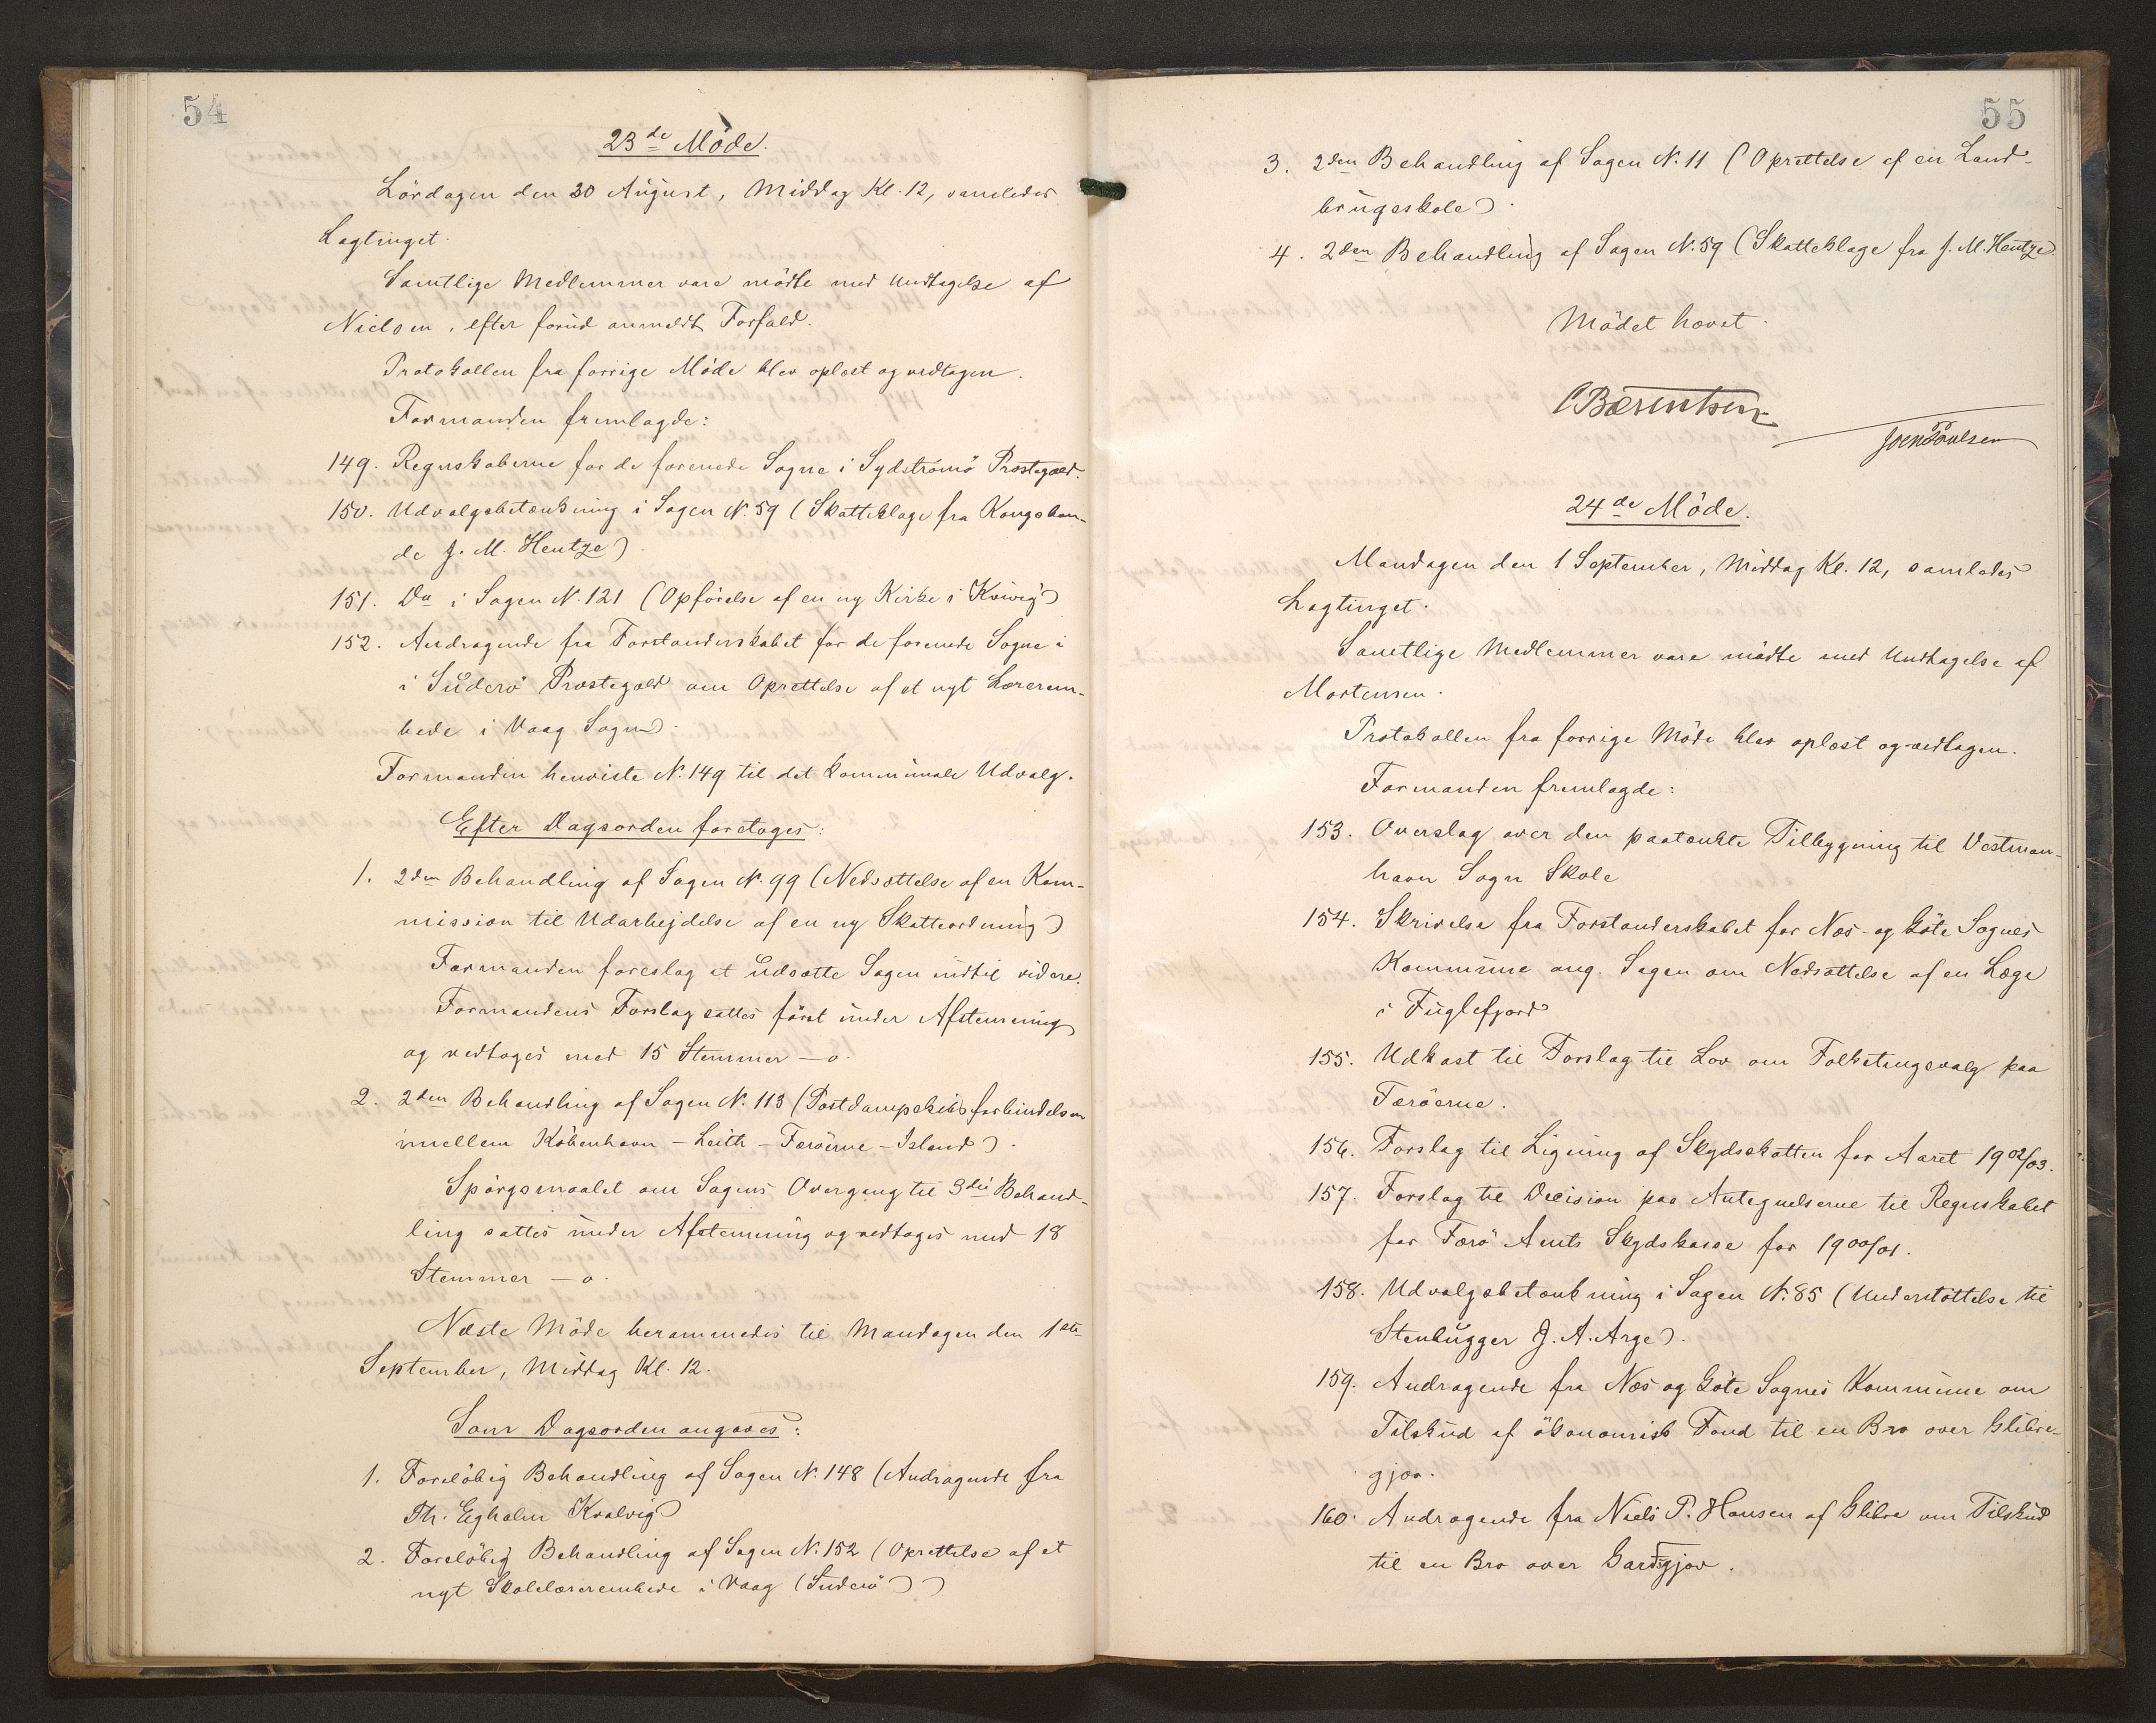 54
23de Möde.
Lördagen den 30 August, Middag Kl. 12, samledes
Lagtinget.
Samtlige Medlemmer vare mödte med Undtagelse af
Nielsen, efter forud anmeldt Forfald.
Protokollen fra forrige Möde blev oplæst og vedtagen.
Formanden fremlagde:
149. Regnskaberne for de forenede Sogne i Sydströmö Præstegæld.
150. Udvalgsbetænkning i Sagen N. 59 (Skatteklage fra Kongsbon-
de J. M. Hentze).
151. Do i Sagen N. 121 (Opförelse af en ny Kirke i Kvivig)
152. Andragende fra Forstanderskabet for de forenede Sogne i
i Suderö Præstegæld om Oprettelse af et nyt Lærerem-
bede i Vaag Sogn.
Formanden henviste N. 149 til det kommunale Udvalg.
Efter Dagsorden foretoges:
1. 2den Behandling af Sagen N. 99 (Nedsættelse af en Kom-
mission til Udarbejdelse af en ny Skatteordning)
Formanden foreslog at udsætte Sagen indtil videre.
Formandens Forslag sattes först under Afstemning
og vedtoges med 15 Stemmer – o.
2. 2den Behandling af Sagen N. 113 (Postdampskibsforbindelsen
imellem Köbenhavn – Leith – Færöerne – Island).
Spörgsmaalet om Sagens Overgang til 3die Behand-
ling sattes under Afstemning og vedtoges med 18
Stemmer – o.
Næste Möde berammedes til Mandagen den 1ste
September, Middag Kl. 12.
Som Dagsorden angaves:
1. Forelöbig Behandling af Sagen N. 148 (Andragende fra
Th. Egholm Kvalvig)
2. Forelöbig Behandling af Sagen N. 152 (Oprettelse af et
nyt Skolelærerembede i Vaag (Suderö))
55
3. 2den Behandling af Sagen N. 11 (Oprettelse af en Land-
brugsskole).
4. 2den Behandling af Sagen N. 59 (Skatteklage fra J. M. Hentze)
Mödet hævet.
C Bærentsen
Joen Poulsen
24de Möde.
Mandagen den 1 September, Middag Kl. 12, samledes
Lagtinget.
Samtlige Medlemmer vare mödte med Undtagelse af
Mortensen.
Protokollen fra forrige Möde blev oplæst og vedtagen.
Formanden fremlagde:
153. Overslag over den paatænkte Tilbygning til Vestman-
havn Sogns Skole
154. Skrivelse fra Forstanderskabet for Næs- og Göte Sognes
Kommune ang. Sagen om Nedsættelse af en Læge
i Fuglefjord
155. Udkast til Forslag til Lov om Folketingsvalg paa
Færöerne.
156. Forslag til Ligning af Skydsskatten for Aaret 1902/03.
157. Forslag til Decision paa Antegnelserne til Regnskabet
for Færö Amts Skydskasse for 1900/01.
158. Udvalgsbetænkning i Sagen N. 85 (Understöttelse til
Stenhugger J. A. Arge).
159. Andragende fra Næs og Göte Sognes Kommune om
Tilskud af ökonomisk Fond til en Bro over Glibre-
gjov.
160. Andragende fra Niels P. Hansen af Glibre om Tilskud
til en Bro over Gardsgjov.